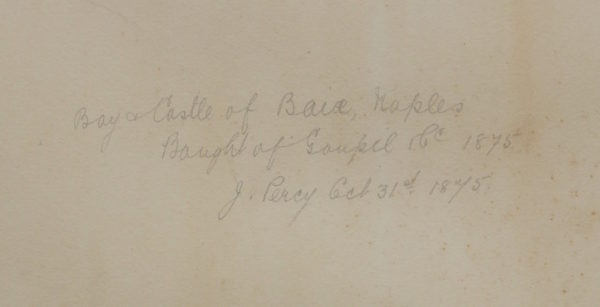 Bay & Castle of Baiæ, Naples
Bought of Goupil & Cº 1875
J. Percy Oct 31st 1875.